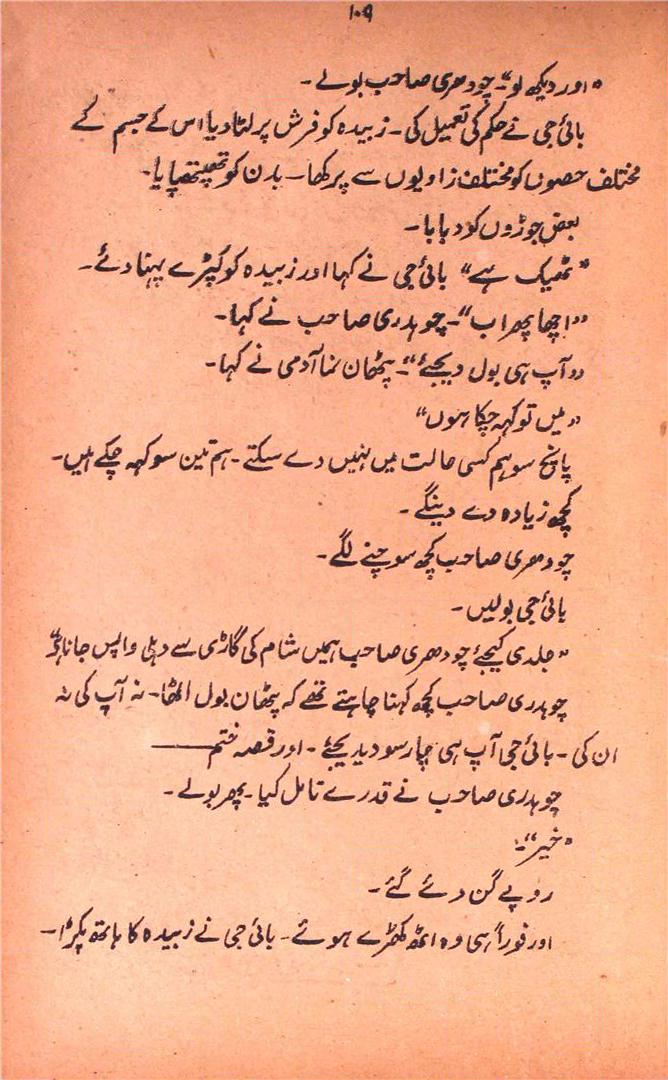 ۱۰۹
"اور دیکھ لو"۔ چودھری صاحب بولے۔
بائی جی نے حکم کی تعمیل کی۔ زبیدہ کو فرش پر لٹا دیا اس کے جسم کے
مختلف حصوں کو مختلف زاویوں سے پرکھا۔ بدن کو تھپتھپایا۔
بعض جوڑوں کو دبایا۔
"ٹھیک ہے" بائی جی نے کہا اور زبیدہ کو کپڑے پہنا دئے۔
"اچھا پھر اب"۔ چوہدری صاحب نے کہا۔
"آپ ہی بول دیجئے"۔ پٹھان نما آدمی نے کہا۔
"میں تو کہہ چکا ہوں"
پانچ سو ہم کسی حالت میں نہیں دے سکتے۔ ہم تین سو کہہ چکے ہیں۔
کچھ زیادہ دے دینگے۔
چودھری صاحب کچھ سوچنے لگے۔
بائی جی بولیں۔
"جلدی کیجئے چودھری صاحب ہمیں شام کی گاڑی سے دہلی واپس جانا ہے"
چوہدری صاحب کچھ کہنا چاہتے تھے کہ پٹھان بول اٹھا۔ نہ آپ کی نہ
ان کی۔ بائی جی آپ ہی چار سو دیدیجئے۔ اور قصہ ختم ——
چوہدری صاحب نے قدرے تامل کیا۔ پھر بولے۔
"خیر"۔
روپے گن دئے گئے۔
اور فوراً ہی وہ اٹھ کھڑے ہوئے۔ بائی جی نے زبیدہ کا ہاتھ پکڑا۔